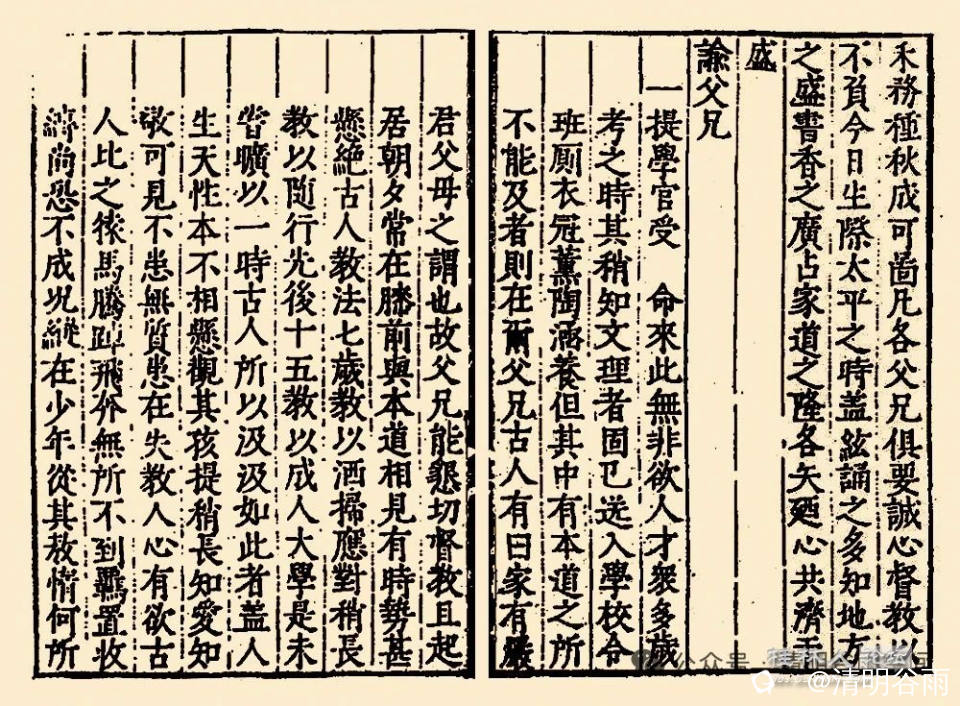 禾務種秋成可啚凡各父兄俱要誠心督教以
不負今日生際太平之時盖絃誦之多知地方
之盛書香之廣占家道之隆各矢廼心共濟王
盛
諭父兄
一提學官受　命來此無非欲人才衆多歲
考之時其稍知文理者固已送入學校合
班廁衣冠薰陶涵養但其中有本道之所
不能及者則在爾父兄古人有曰家有嚴
君父母之謂也故父兄能懇切督教且起
居朝夕常在膝前與本道相見有時勢甚
懸絶古人教法七歲教以洒掃應對稍長
教以随行先後十五教以成人大學是未
甞曠以一時古人所以汲汲如此者盖人
生天性本不相懸觀其孩提稍長知愛知
敬可見不患無質患在失教人心有欲古
人比之猿馬騰踔飛外無所不到羈置收
濟尚恐不成况縱在少年從其敖惰何所
公众号
@清明谷雨